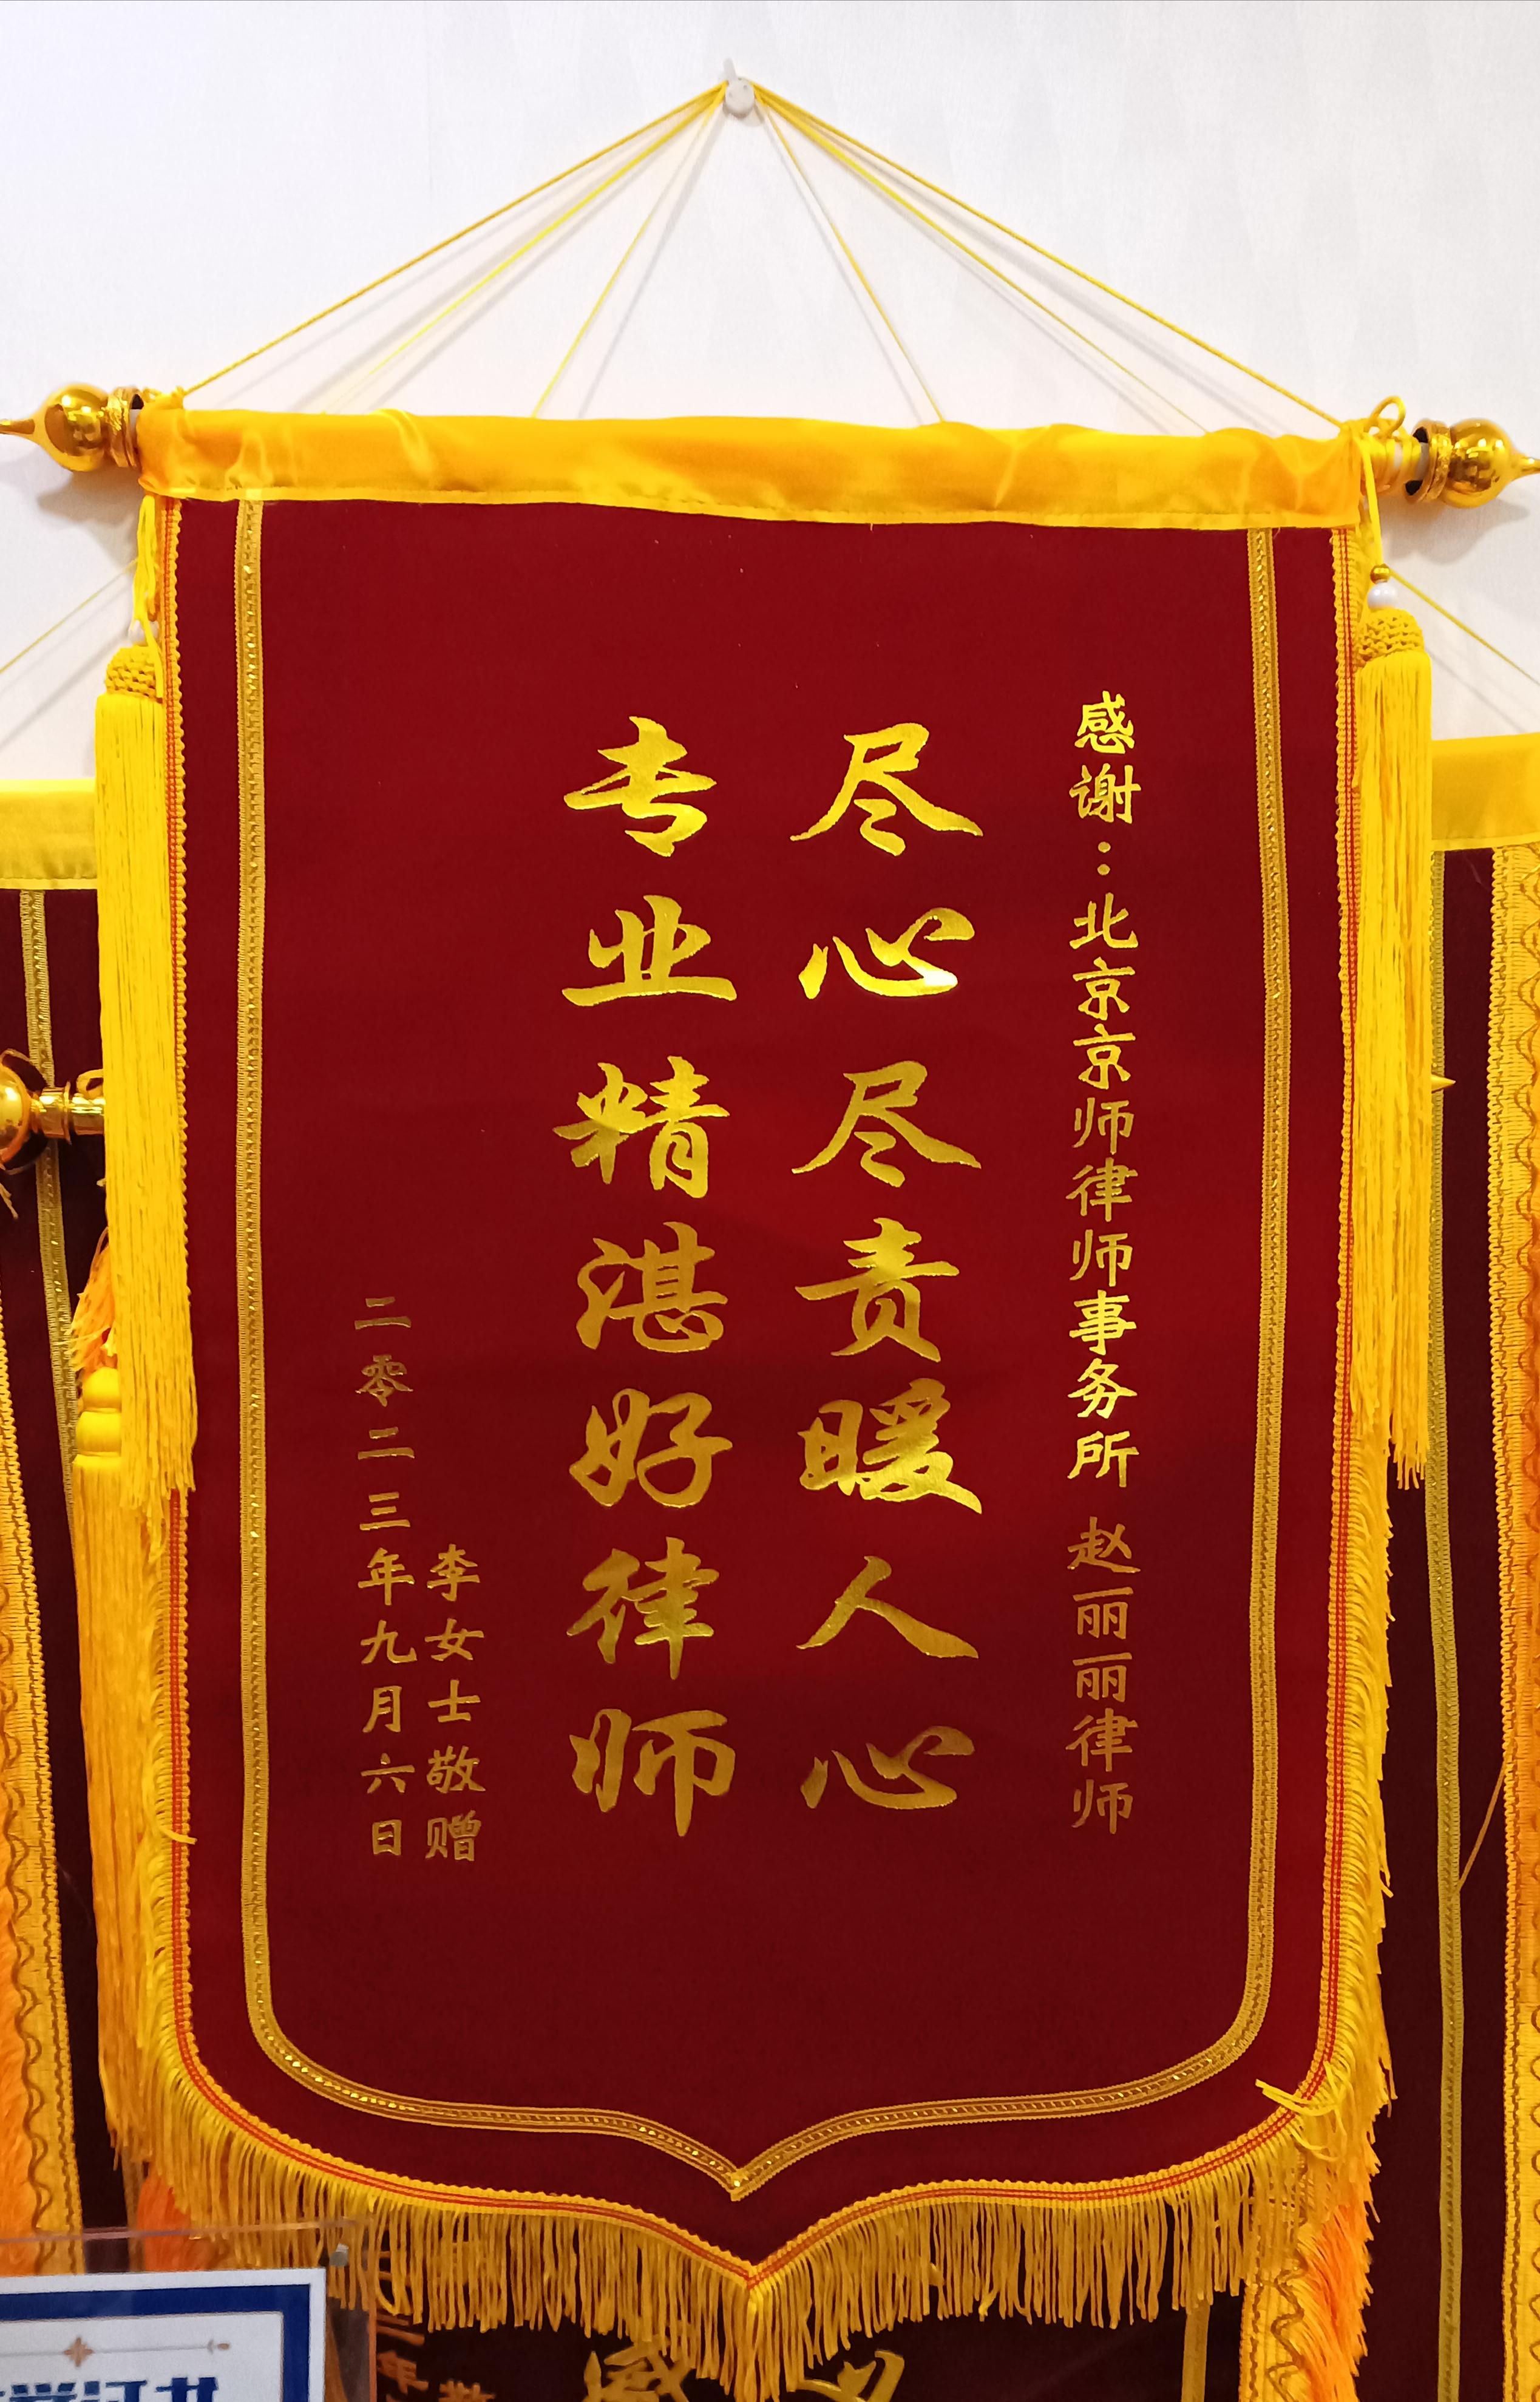 感谢：北京京师律师事务所 赵丽丽律师
尽心尽责暖人心
专业精湛好律师
李女士敬赠
二零二三年九月六日